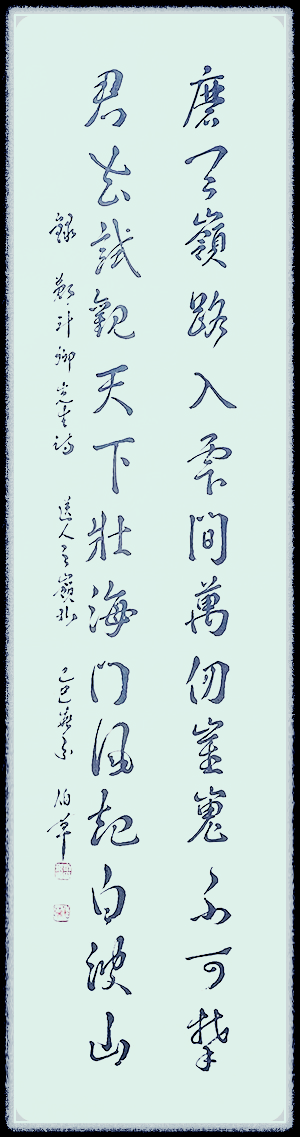 磨天嶺路入雲間萬仞崔嵬不可攀
君去試觀天下壯海門風起白波山
錄 鄭斗卿先生詩 送人之嶺北 己巳 伯草